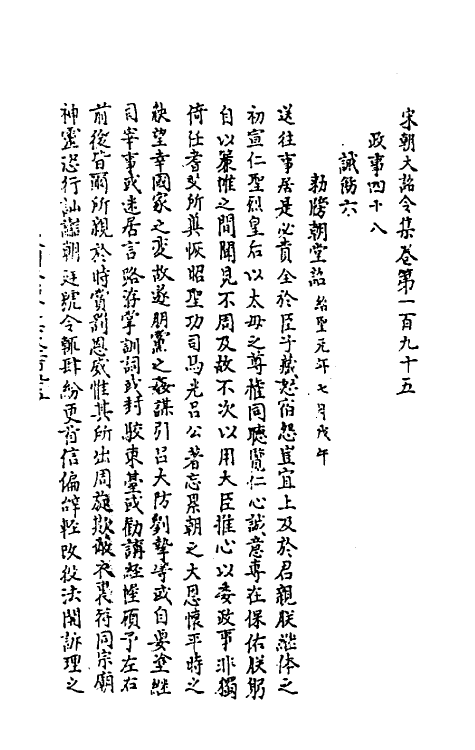 宋朝大詔令集卷第一百九十五
政事四十八
誡飭六
勅牓朝堂詔紹聖元年七月戊午
送往事居是必責全於臣子藏怒宿怨豈宜上及於君親朕繼体之
初宣仁聖烈皇后以太母之尊權同聽覽仁心誠意專在保佑朕躬
自以簾帷之間聞見不周及故不次以用大臣推心以委政事非獨
倚任耆艾所冀恢昭聖功司馬光呂公著忘累朝之大恩懷平時之
缺望幸國家之变故遂朋黨之姦謀引呂大防劉摯等或自要塗継
司宰事或迭居言路或掌訓詞或封駁東臺或勸講経幄頋予左右
前後皆爾所親於時賞罰恩威惟其所出周旋欺蔽表裏符同宗廟
神靈恣行訕讟朝廷號令輒肆紛更首信偏辞輕改役法開訴理之